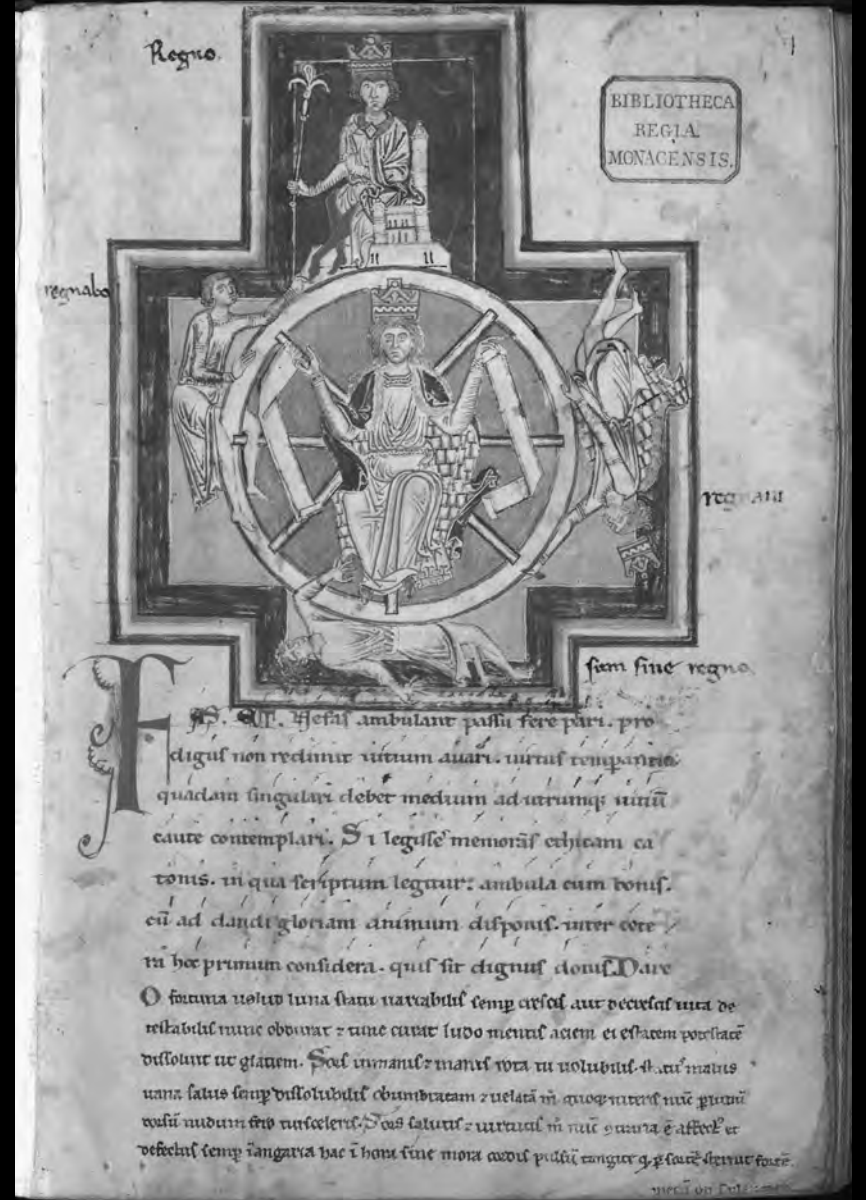 Regno.
1
BIBLIOTHECA
REGIA
MONACENSIS.
regnabo
regnaui
sum sine regno
Fas et Nefas ambulant passu fere pari. pro
digus non redimit uitium auari. uirtus temperantia
quadam singulari debet medium ad utrumque uitiū
caute contemplari. Si legisse memoras ethicam ca
tonis. in qua scriptum legitur: ambula cum bonis.
cū ad dandi gloriam animum disponis. inter cete
ra hoc primum considera. quis sit dignus donis. Dare
O fortuna uelud luna statu uariabilis semper crescis aut decrescis uita de
testabilis nunc obdurat ⁊ tunc curat ludo mentis aciem egestatem potestatē
dissoluit ut glaciem. Sors inmanis ⁊ inanis rota tu uolubilis. status malus
uana salus semper dissolubilis obumbratam ⁊ uelatā m̄ quoque niteris nūc per ludum
dorsū nudum fero tui sceleris. Sors salutis ⁊ uirtutis m̄ nūc contraria ē affectus et
defectus semper ī angaria hac ī hora sine mora cordis pulsū tangite q̄ per sortē sternit fortē.